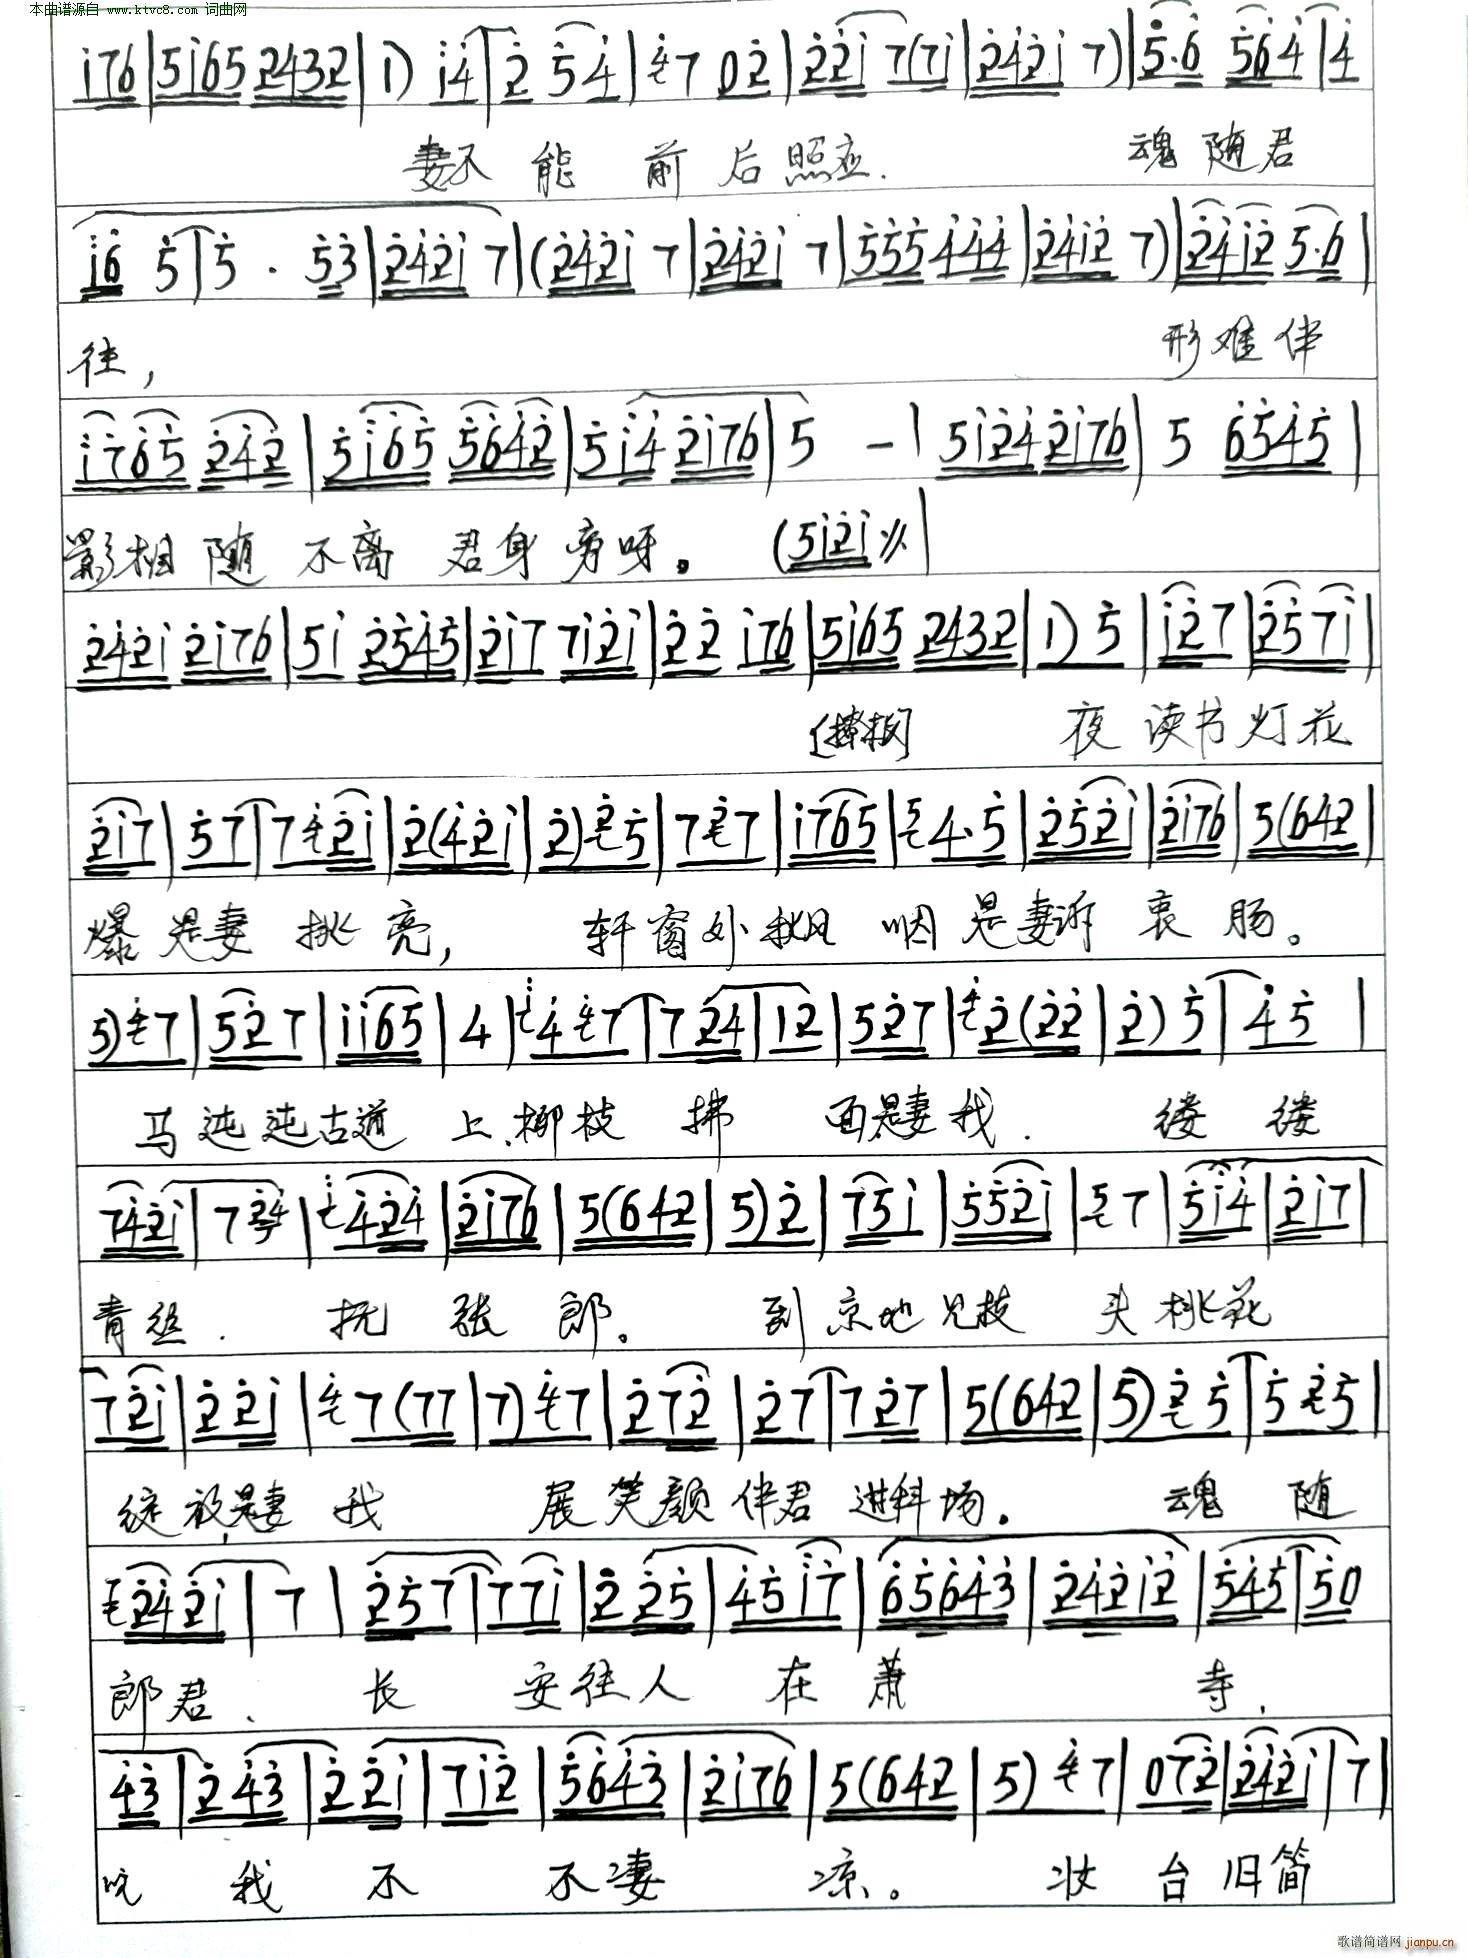 本曲谱源自 www.ktvc8.com 词曲网
i76|5i65 2432|1) i4|2 54|7 02|22i 7(7i|242i 7)|5·6 564|4
妻不能 前后照应. 魂随君
i6 5|5· 53|242i 7|(242i 7|242i 7|555 444|2412 7)|2412 5·6|
往, 形难伴
i765 242|5i65 5642|5i4 2i76|5 -|5i24 2i76|5 6545|
影相随不离君身旁呀。(5i2i
242i 2i76|5i 2545|2i7 7i2i|22 i76|5i65 2432|1) 5|i27|257i|
夜读书灯花
2i7|57|7 2i|2(42i|2) 5|7 7|i765|4·5|252i|2i76|5(642|
爆是妻挑亮, 轩窗外秋风咽是妻诉衷肠。
5) 7|527|ii65|4|4 7|7 24|12|527|2(22|2) 5|45|
马迍迍古道上、柳枝拂面是妻我. 缕缕
742i|7 24|424|2i76|5(642|5) 2|75i|552i|7|5i4|2i7|
青丝. 抚张郎。到京地见枝头桃花
72i|22i|7(77|7) 7|272|27|727|5(642|5) 5|5 5|
绽放,是妻我展笑颜伴君进科场。魂随
242i|7|257|77i|225|45i7|65643|242i2|545|50
郎君、长安往人在萧寺,
43|243|22i|7i2|5643|2i76|5(642|5) 7|072|242i|7|
咒我不不凄凉。妆台旧简
歌谱简谱网 jianpu.cn